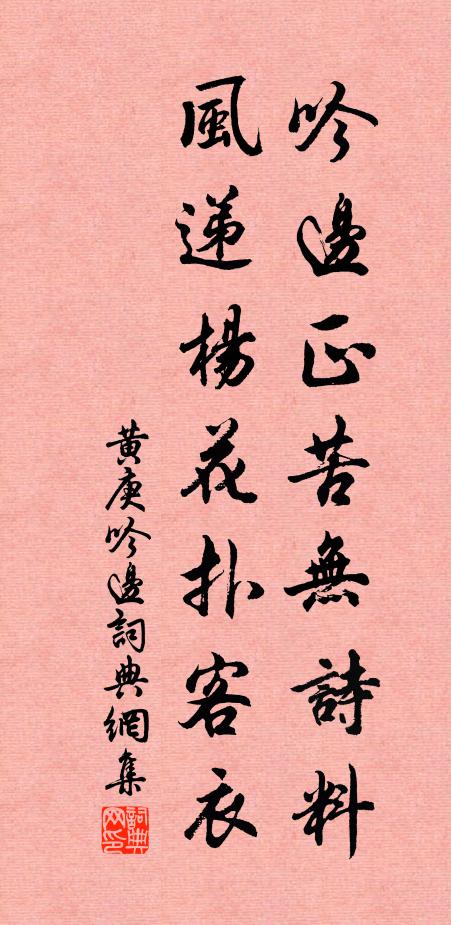 吟邊正苦無詩料
風遞楊花扑客衣
黄庚吟邊詞典網集
詞典网印